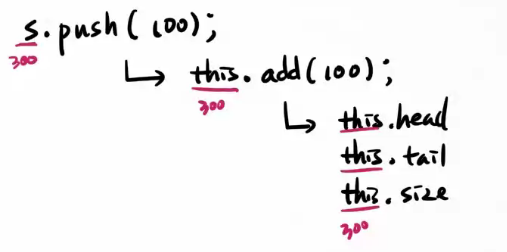 s.push(100);
300
↳ this.add(100);
300
↳ this.head
this.tail
this.size
300